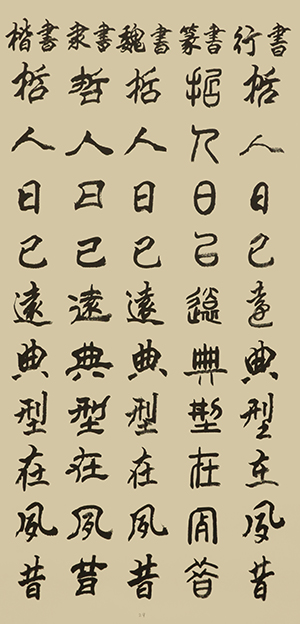 楷書 哲人日已遠典型在夙昔
隶書 哲人日已遠典型在夙昔
魏書 哲人日已遠典型在夙昔
篆書 哲人日已遠典型在夙昔
行書 哲人日已遠典型在夙昔